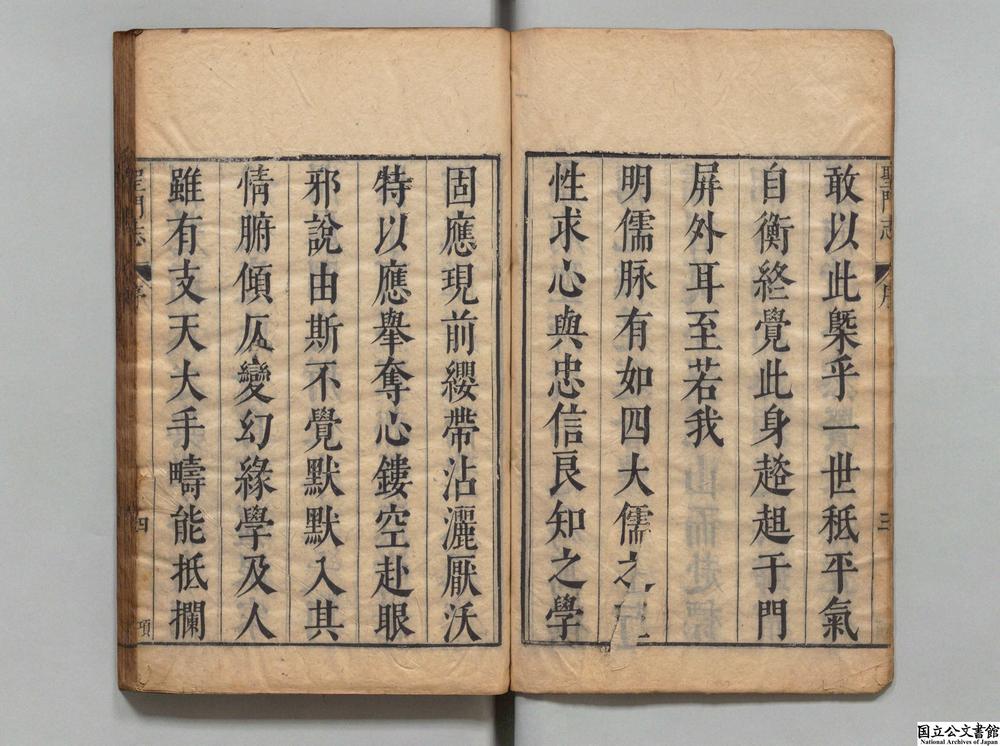 聖門志 序 三
敢以此槩乎一世秪平氣
自衡終覺此身趦趄于門
屏外耳至若我
明儒脉有如四大儒之
性求心與忠信良知之學
固應現前纓帶沾灑厭沃
特以應舉奪心鏤空赴眼
邪說由斯不覺默默入其
情腑傾仄變幻緣學及人
雖有支天大手疇能抵攔
聖門志 序 四 項
国立公文書館
National Archives of Japan